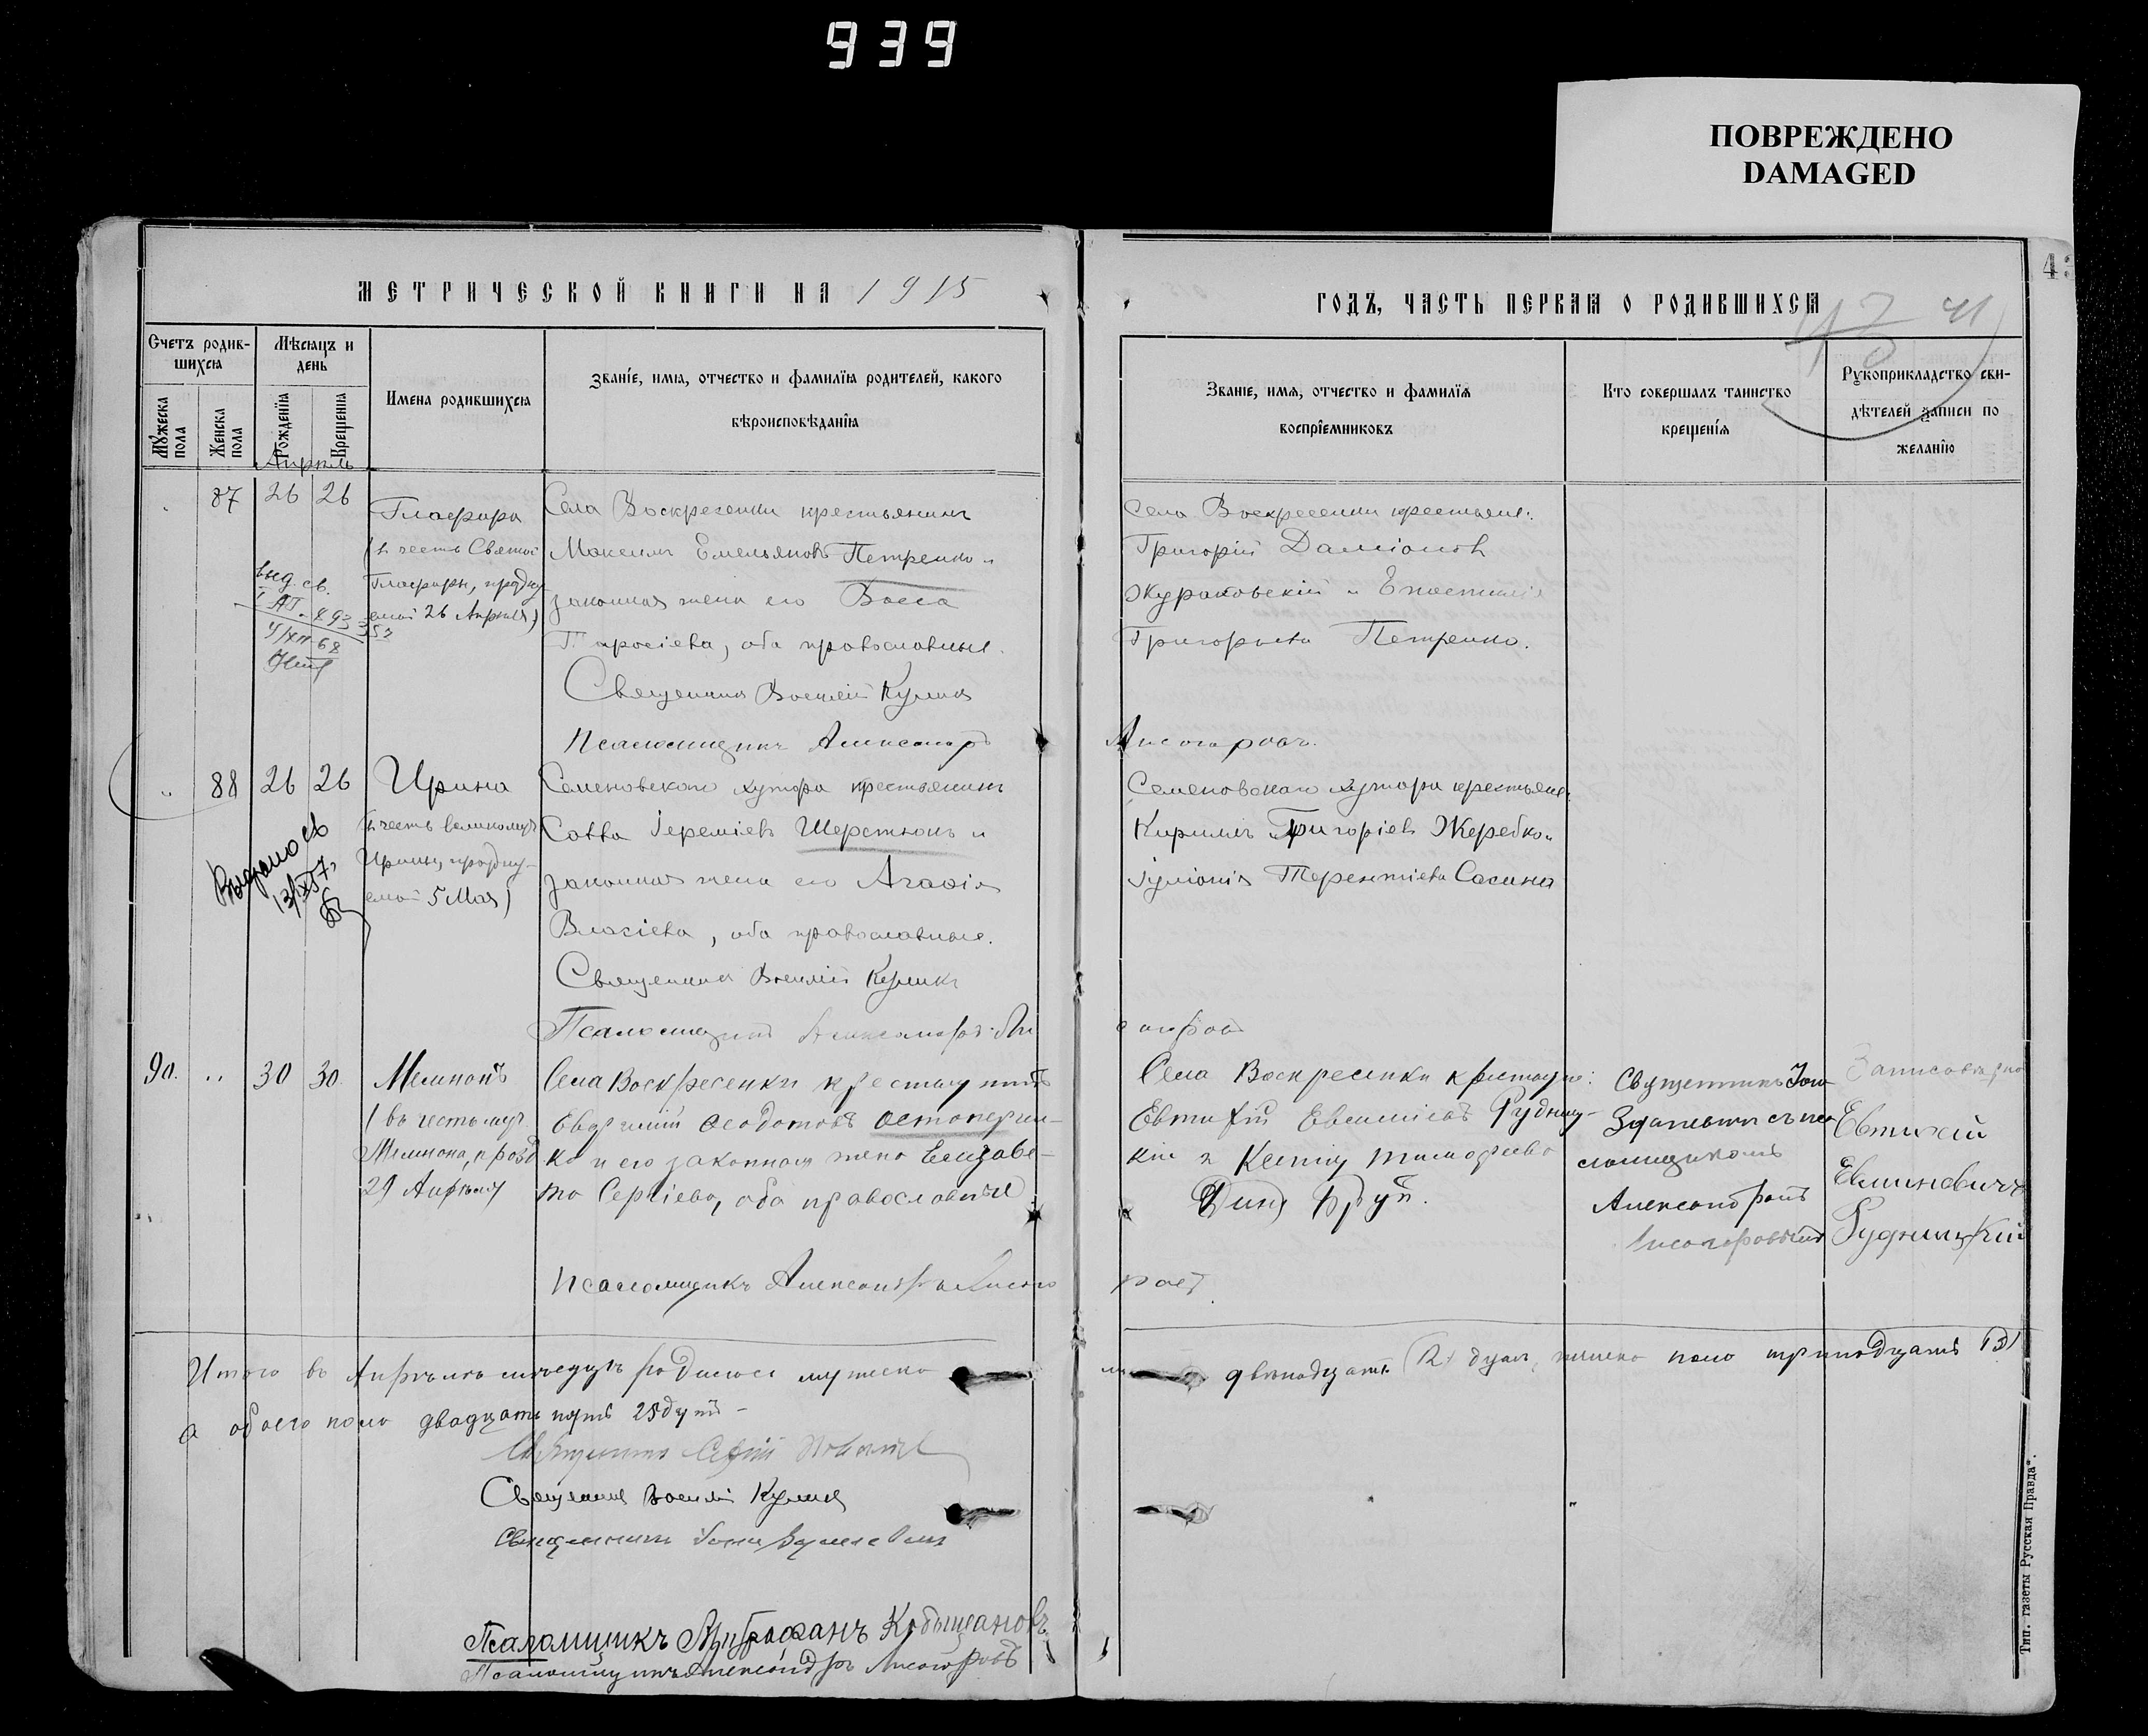 939
ПОВРЕЖДЕНО
DAMAGED
МЕТРИЧЕСКОЙ КНИГИ НА 1915
ГОДЪ, ЧАСТЬ ПЕРВАЯ О РОДИВШИХСЯ
41
Счетъ родив-
шихся
Мужеска пола
Женска пола
Мѣсяцъ и
день
Рожденїя
Крещенїя
Имена родившихся
Званїе, имя, отчество и фамилїя родителей, какого
вѣроисповѣданїя
Званїе, имя, отчество и фамилїя
воспрїемниковъ
Кто совершалъ таинство
крещенїя
Рукоприкладство сви-
дѣтелей записи по
желанїю
Апрѣль
87 26 26
Глафира
(въ честь Святой
Глафиры, праздну
емой 26 Апрѣля)
выд. св.
Села Воскресенки крестьянинъ
Максимъ Емельяновъ Петренко и
законная жена его Васса
Тарасіева, оба православные.
Священникъ Василій Куликъ
Псаломщикъ Александръ
Лисогоровъ.
Села Воскресенки крестьяне:
Григорій Даміановъ
Жураковскій и
Григорьева Петренко.
88 26 26
Ирина
(въ честь великомуч
Ирины, праздну-
емой 5 Мая)
Выдано св
13/IX 57
Семеновскаго хутора крестьянинъ
Савва Іереміевъ Шерстюкъ и
законная жена его Агафія
Власіева, оба православные.
Священникъ Василій Куликъ
Псаломщикъ Александръ Ли
согоровъ
Семеновскаго хутора крестьяне:
Кириллъ Григоріевъ Жеребко и
Іуліанія Терентіева Сасина
90. 30 30.
Мемнонъ
(въ честь муч.
Мемнона, празд
29 Апрѣля)
Села Воскресенки крестьянинъ
Ѳеодотовъ Остапен-
ко и его законная жена Елизаве-
та Сергіева, оба православные
Псаломщикъ Александръ Лисого
ровъ.
Села Воскресенки крестьяне:
Евтихій Евминіевъ Рудниц-
кій и Ксенія Тимофеева
Священникъ Іоан
съ пса
ломщикомъ
Александромъ
Лисогоровымъ
Евтихій
Евминовичъ
Рудницкій
Итого въ Апрѣлѣ мѣсяцѣ родилось мужеска
двѣнадцать 12 душъ, женска пола тринадцать 13
а обоего пола двадцать пять 25 душъ
Священникъ Василій Куликъ
Священникъ Іоаннъ
Псаломщикъ Митрофанъ Кобыщановъ
Псаломщикъ Александръ Лисогоровъ
Тип. газеты Русская Правда".